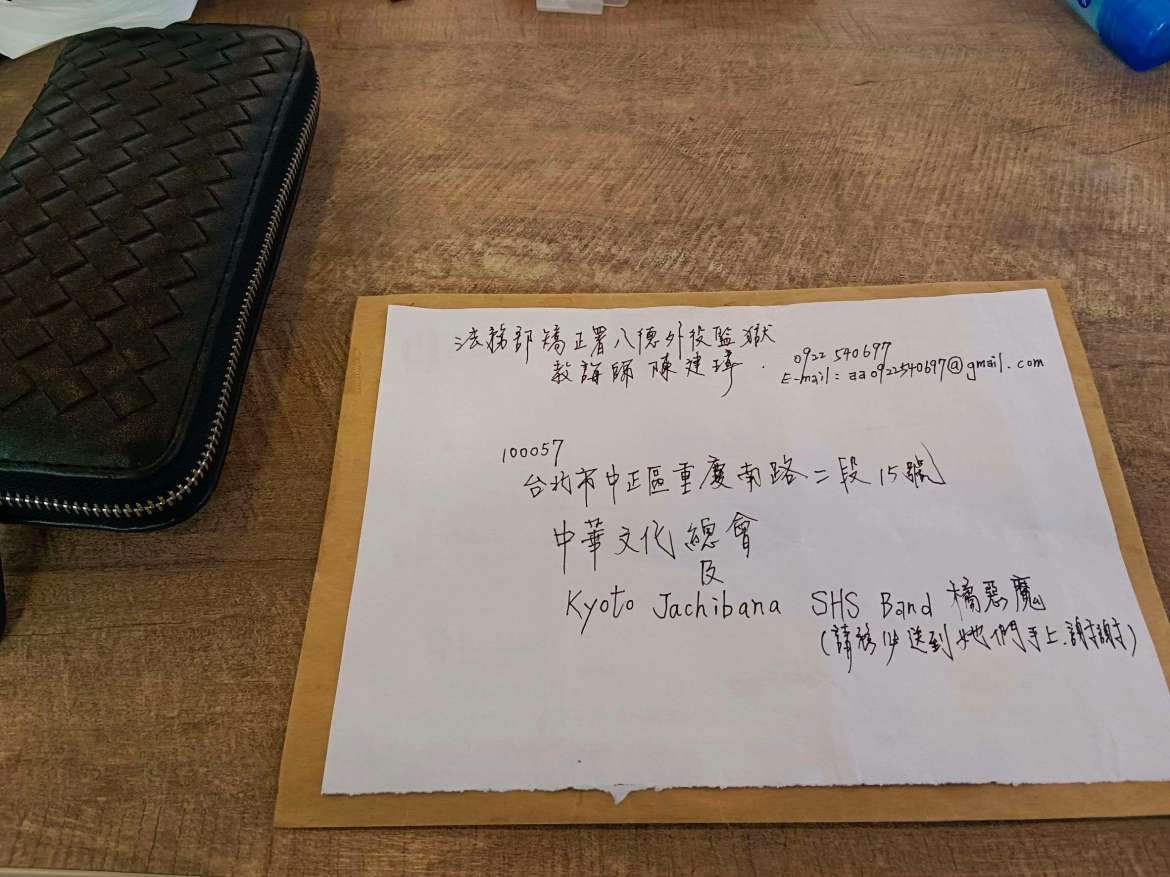 法務部矯正署八德外役監獄
教誨師 陳建瑋.
0922 540697
E-mail: aa0922540697@gmail.com
100057
台北市中正區重慶南路二段15號
中華文化總會
及
Kyoto Jachibana SHS Band 橘惡魔
(請務必送到她們手上.謝謝)